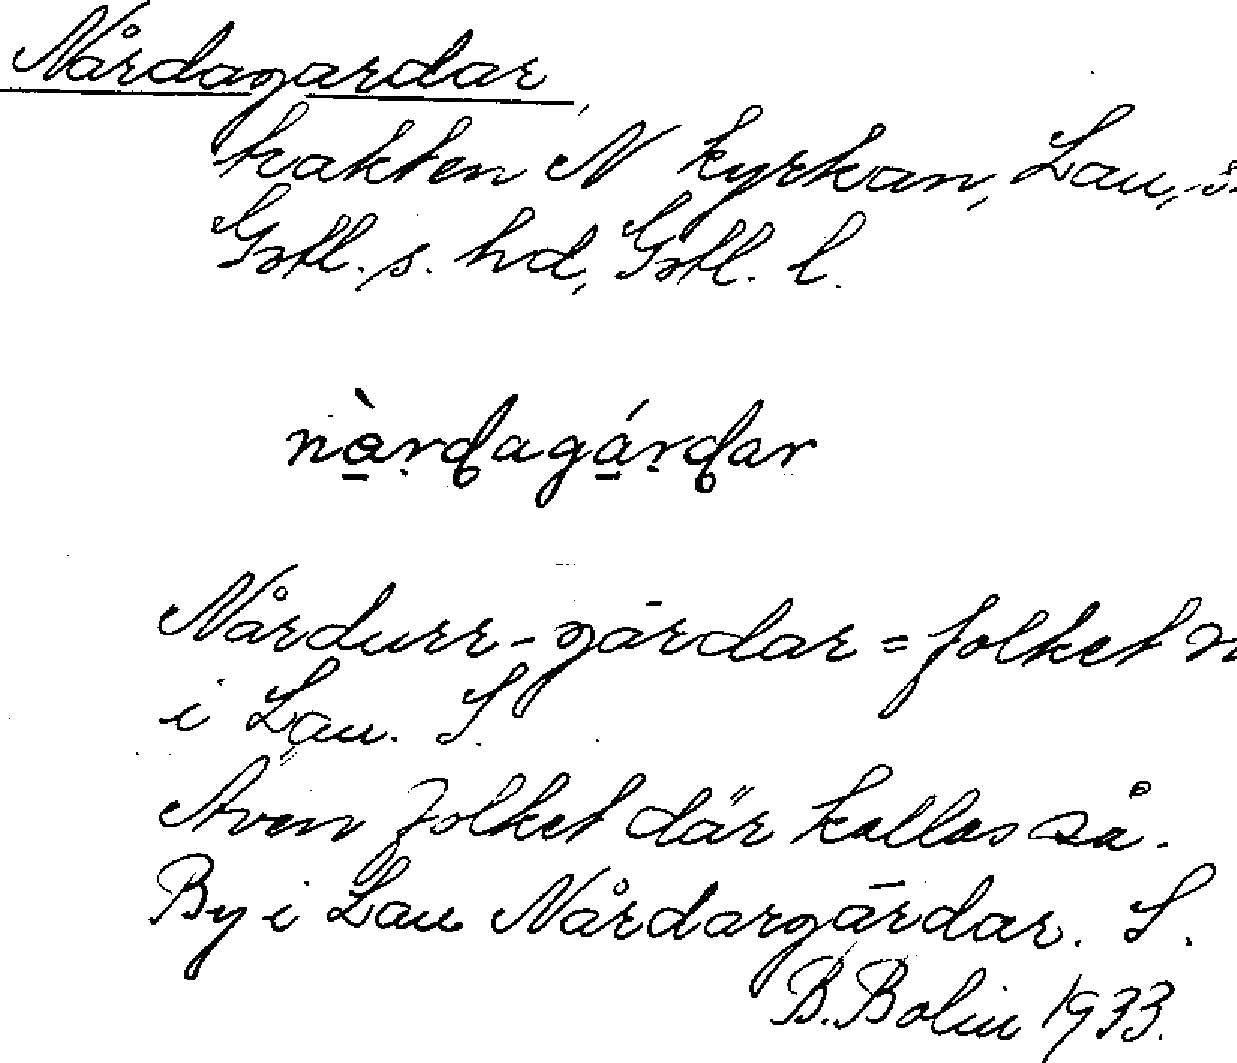 Nårdagardar,
trakten N kyrkan, Lau,
Gotl. s. hd, Gotl. l.
nàrdagárdar
Nårdurr-gārdar = folket n
i Lau. S.
Även folket där kallas så.
By i Lau Nårdargārdar. S.
B. Bolin 1933.